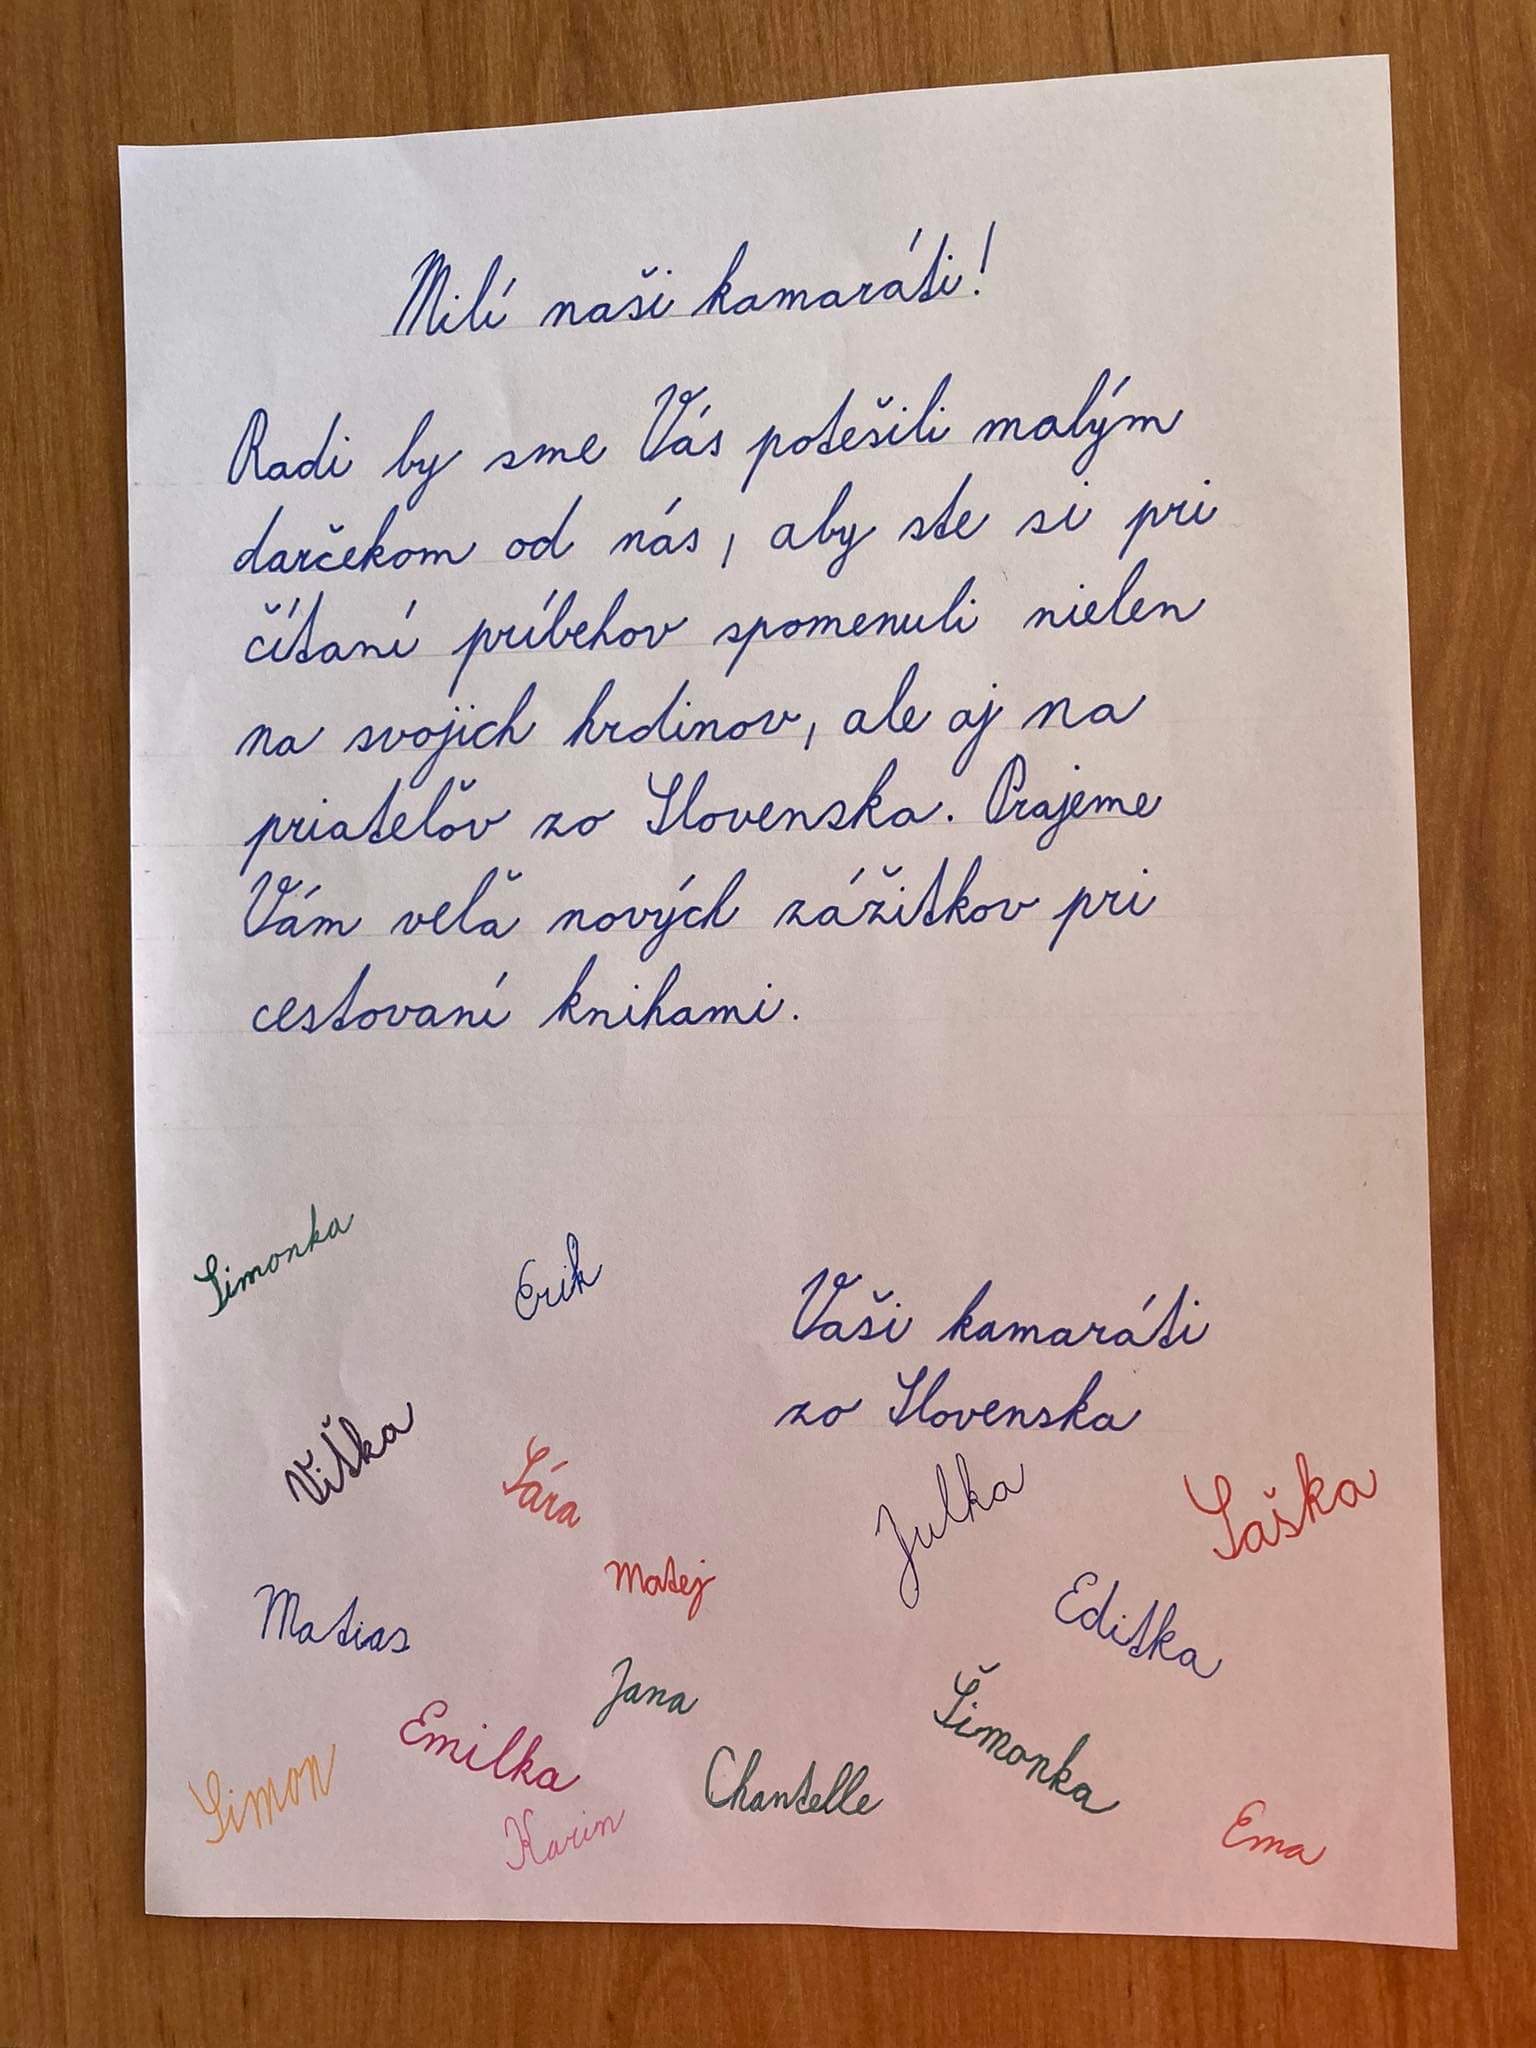 Milí naši kamaráti!
Radi by sme Vás potešili malým
darčekom od nás, aby ste si pri
čítaní príbehov spomenuli nielen
na svojich hrdinov, ale aj na
priateľov zo Slovenska. Prajeme
Vám veľa nových zážitkov pri
cestovaní knihami.
Simonka
Erik
Vaši kamaráti
zo Slovenska
Viťka
Sára
Julka
Saška
Matias
Matej
Editka
Jana
Šimonka
Emilka
Simon
Chantelle
Karin
Ema